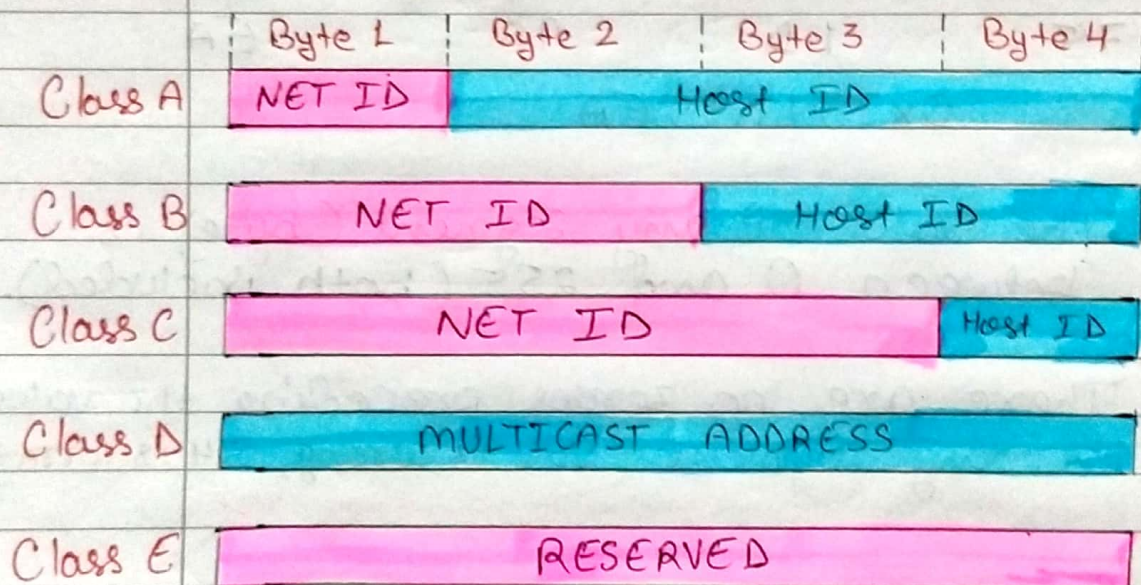 Byte 1 Byte 2 Byte 3 Byte 4
Class A NET ID Host ID
Class B NET ID Host ID
Class C NET ID Host ID
Class D MULTICAST ADDRESS
Class E RESERVED